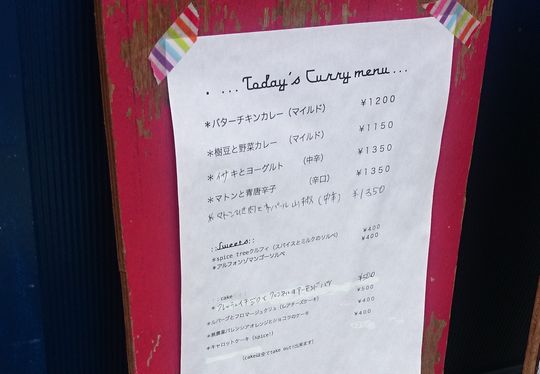 . ...Today's Curry menu...
＊バターチキンカレー（マイルド） ￥1200
＊樹豆と野菜カレー （マイルド） ￥1150
＊イサキとヨーグルト （中辛） ￥1350
＊マトンと青唐辛子 （辛口） ￥1350
＊マトンひき肉とネパール山椒（中辛） ￥1350
::Sweets::
＊spice treeクルフィ（スパイスとミルクのソルベ） ￥400
＊アルフォンソマンゴーソルベ ￥400
::cake
￥500
＊ルバーブとフロマージュクリュ（レアチーズケーキ） ￥500
＊無農薬バレンシアオレンジとショコラのケーキ ￥400
＊キャロットケーキ（spice!） ￥400
（cakeは全てtake out！出来ます）